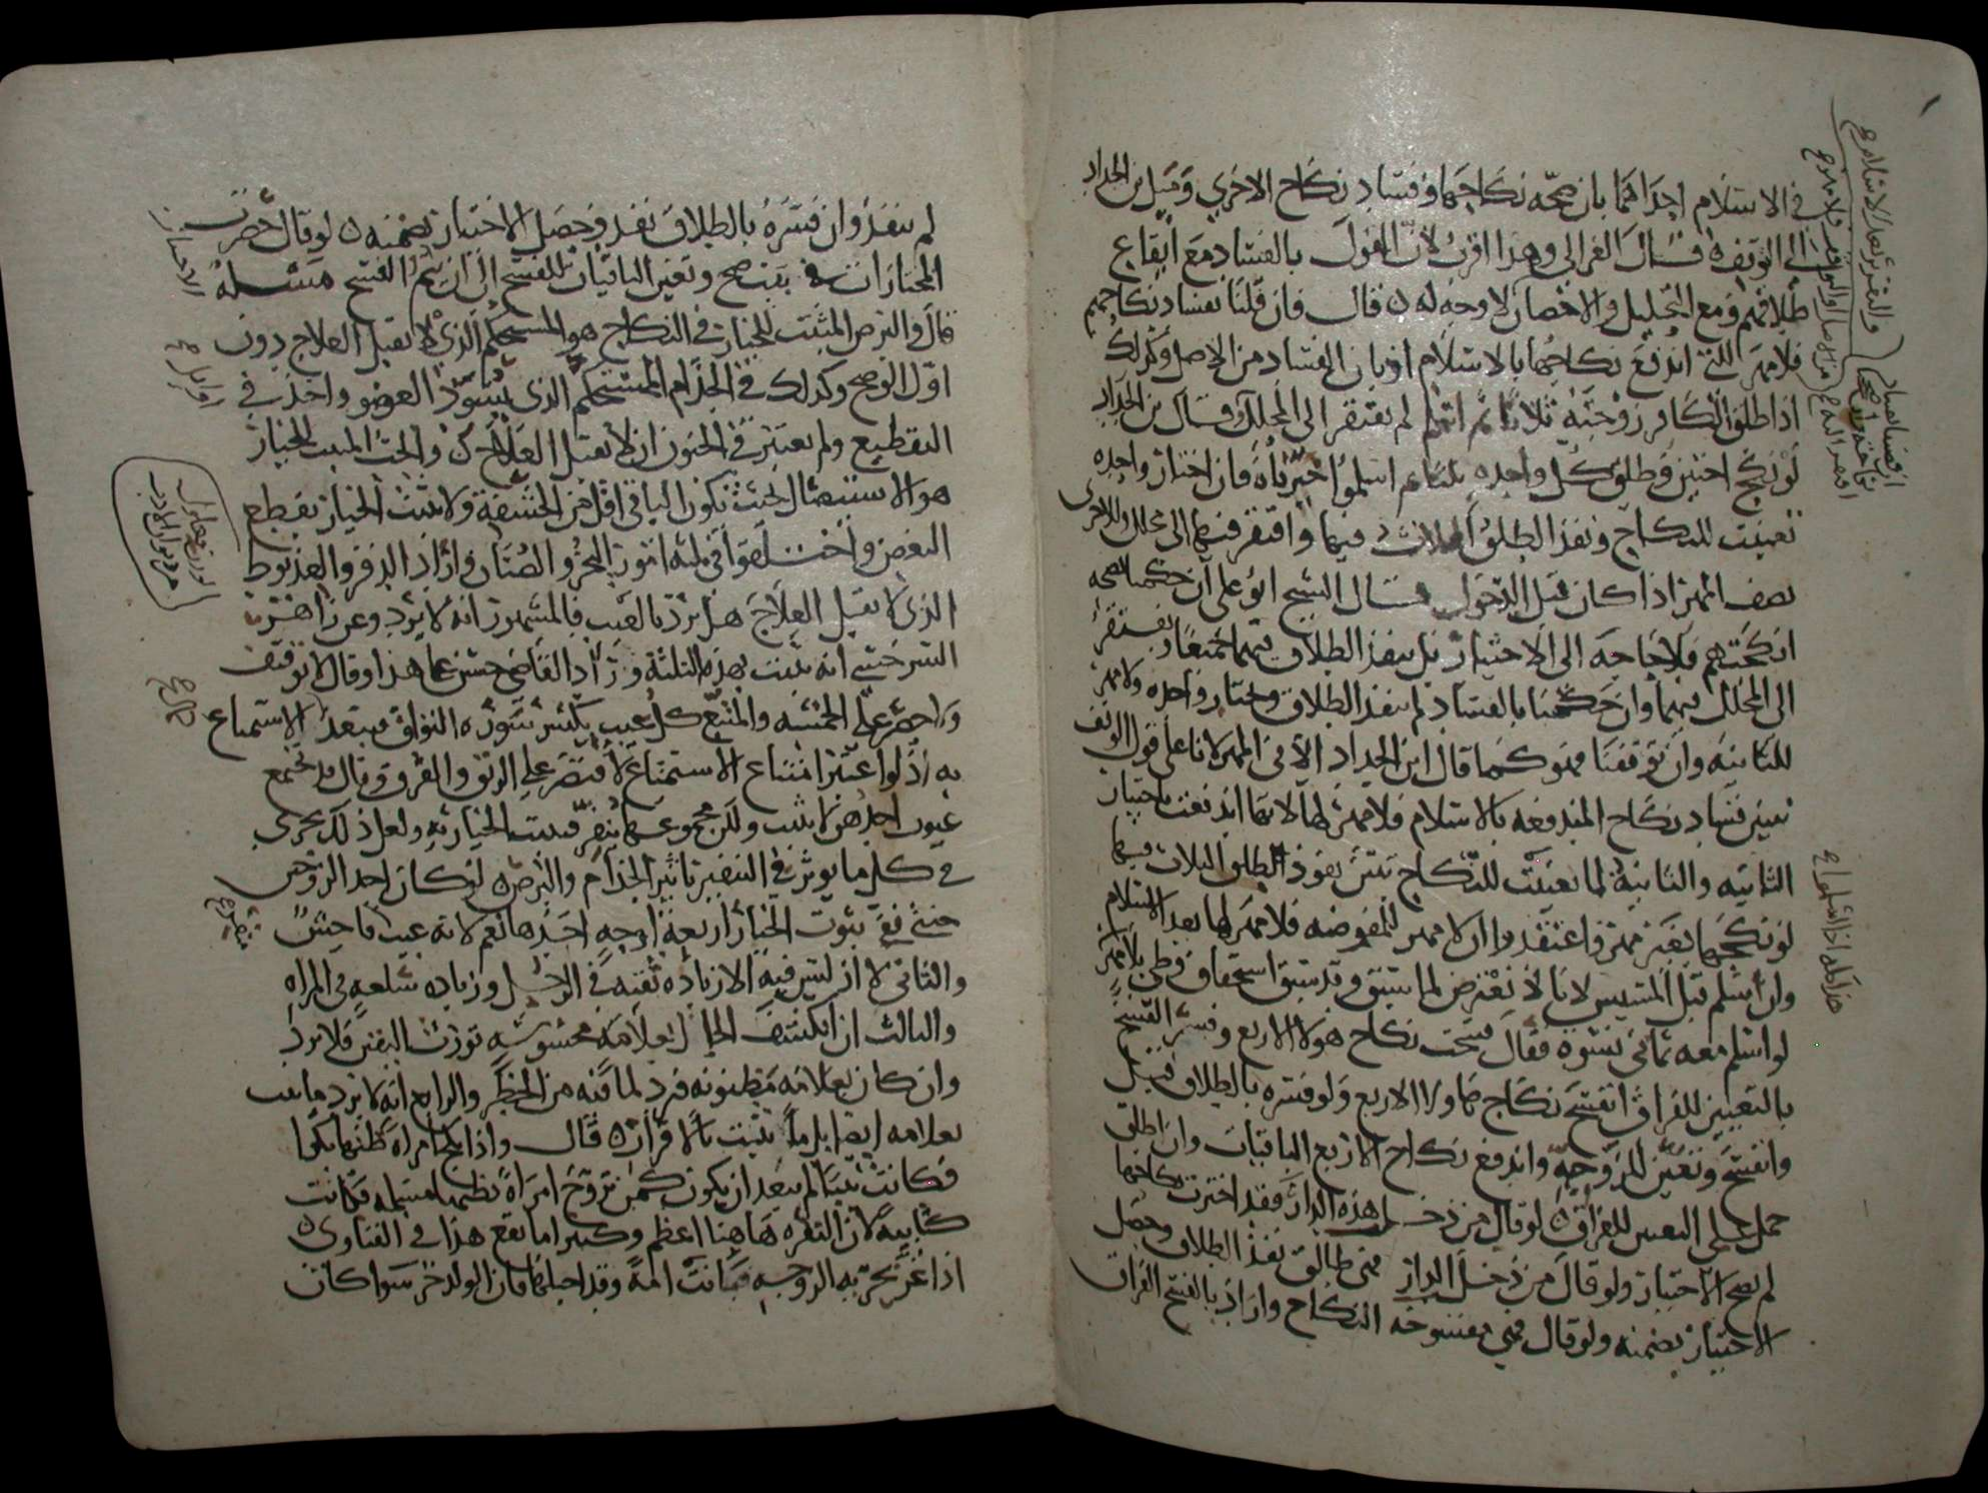 في الاسلام احداهما بان صحة نكاحها وفساد نكاح الاخرى وميل بن الحداد
الى الوقف قال الغزالي وهذا اقرب لان القول بالفساد مع ايقاع
طلاقهم ومع التحليل والاحصان لا وجه له قال فان قلنا بفساد نكاحهم
فلا مهر للتي اندفع نكاحها بالاسلام اذ بان الفساد من الاصل وكذلك
اذا طلق الكافر زوجته ثلاثا ثم اسلم لم يفتقر الى المحلل وقال بن الحداد
لو نكح اختين وطلق كل واحدة ثلثا ثم اسلموا خيرناه فان اختار واحدة
تعينت للنكاح ونفذ الطلق الثلاث فيها وافتقر فيها الى محلل وللاخرى
نصف المهر اذا كان قبل الدخول قال الشيخ ابو علي ان حكمنا بصحة
انكحتهم فلا حاجة الى الاختيار بل ينفذ الطلاق فيهما جميعا ويفتقر
الى المحلل فيهما وان حكمنا بالفساد لم ينفذ الطلاق ويختار واحدة ولا مهر
للثانية وان توقفنا فهو كما قال ابن الحداد الا في المهر لانا على قول الوقف
نبين فساد نكاح المندفعة بالاسلام فلا مهر لها لانها اندفعت باختيار
الثانية والثانية لما تعينت للنكاح تبين نفوذ الطلق الثلاث فيها
لو نكحها بغير مهر واعتقدوا ان لا مهر للمفوضة فلا مهر لها بعد الاسلام
وان اسلم قبل المسيس لانا لا نعترض لما سبق وقد سبق استحقاق وطي بلا مهر
لو اسلم معه ثماني نسوة فقال فسخت نكاح هولا الاربع وفسر الفسخ
بالتعيين للفراق انفسخ نكاحها ولا الاربع ولو فسره بالطلاق قبل
وانفسخ وتعين للزوجية واندفع نكاح الاربع الباقيات وان اطلق
حمل على التعيين للفراق لو قال من دخل هذه الدار فقد اخترت نكاحها
لم يصح الاختيار ولو قال من دخل الدار فهي طالق نفذ الطلاق وحصل
الاختيار بضمنه ولو قال فهي مفسوخة النكاح واراد بالفسخ الفراق
لم ينفذ وان فسره بالطلاق نفذ وحصل الاختيار بضمنه لو قال حصرت
المختارات في ست صح وتعين الباقيات للفسخ الى ان يتم الفسخ مسئلة
قال والبرص المثبت للخيار في النكاح هو المستحكم الذي لا يقبل العلاج دون
اول الوضح وكذلك في الجذام المستحكم الذي يسود العضو واخذ في
التقطيع ولم يعتبر في الجنون ان لا يقبل العلاج والجب المثبت للخيار
هو الاستئصال بحيث يكون الباقي اقل من الحشفة ولا يثبت الخيار بقطع
البعض واختلفوا في ثلثة امور البخر والصنان وازاد الدفر والعذيوط
الذي لا يقبل العلاج هل يرد بالعيب فالمشهور انه لا يرد وعن زاهر
السرخسي انه يثبت بهذه الثلثة وزاد القاضي حسين على هذا وقال لا توقيف
ولا حصر على الخمسة والمتبع كل عيب يكسر سورة التواق فيتعذر الاستمتاع
به اذ لو اعتبر امتناع الاستمتاع لاقتصر على الرتق والقرن وقال قد تجتمع
عيوب احدهن لا يثبت ولكن مجموعها ينفر فيثبت الخيار به ولعل ذلك يجري
في كل ما يوثر في التنفير تاثير الجذام والبرص لو كان احد الزوجين
خنثى ففي ثبوت الخيار اربعة اوجه احدها نعم لانه عيب فاحش
والثاني لا اذ ليس فيه الا زيادة ثقبة في الرجل وزيادة سلعة في المراة
والثالث ان انكشف الحال بعلامة محسوسة تورث اليقين فلا يرد
وان كان بعلامة مظنونة فيرد لما فيه من الخطر والرابع انه لا يرد ما يثبت
بعلامة ايضا بل ما يثبت بالاقرار قال واذا نكح امراة ظنها بكرا
فكانت ثيبا لم يبعد ان يكون كمن تزوج امراة يظنها مسلمة فكانت
كتابية لان النفرة هاهنا اعظم وكثيرا ما تقع هذا في الفتاوى
اذا غر بحرية الزوجة فكانت امة وقد احبلها فان الولد حر سوا كان